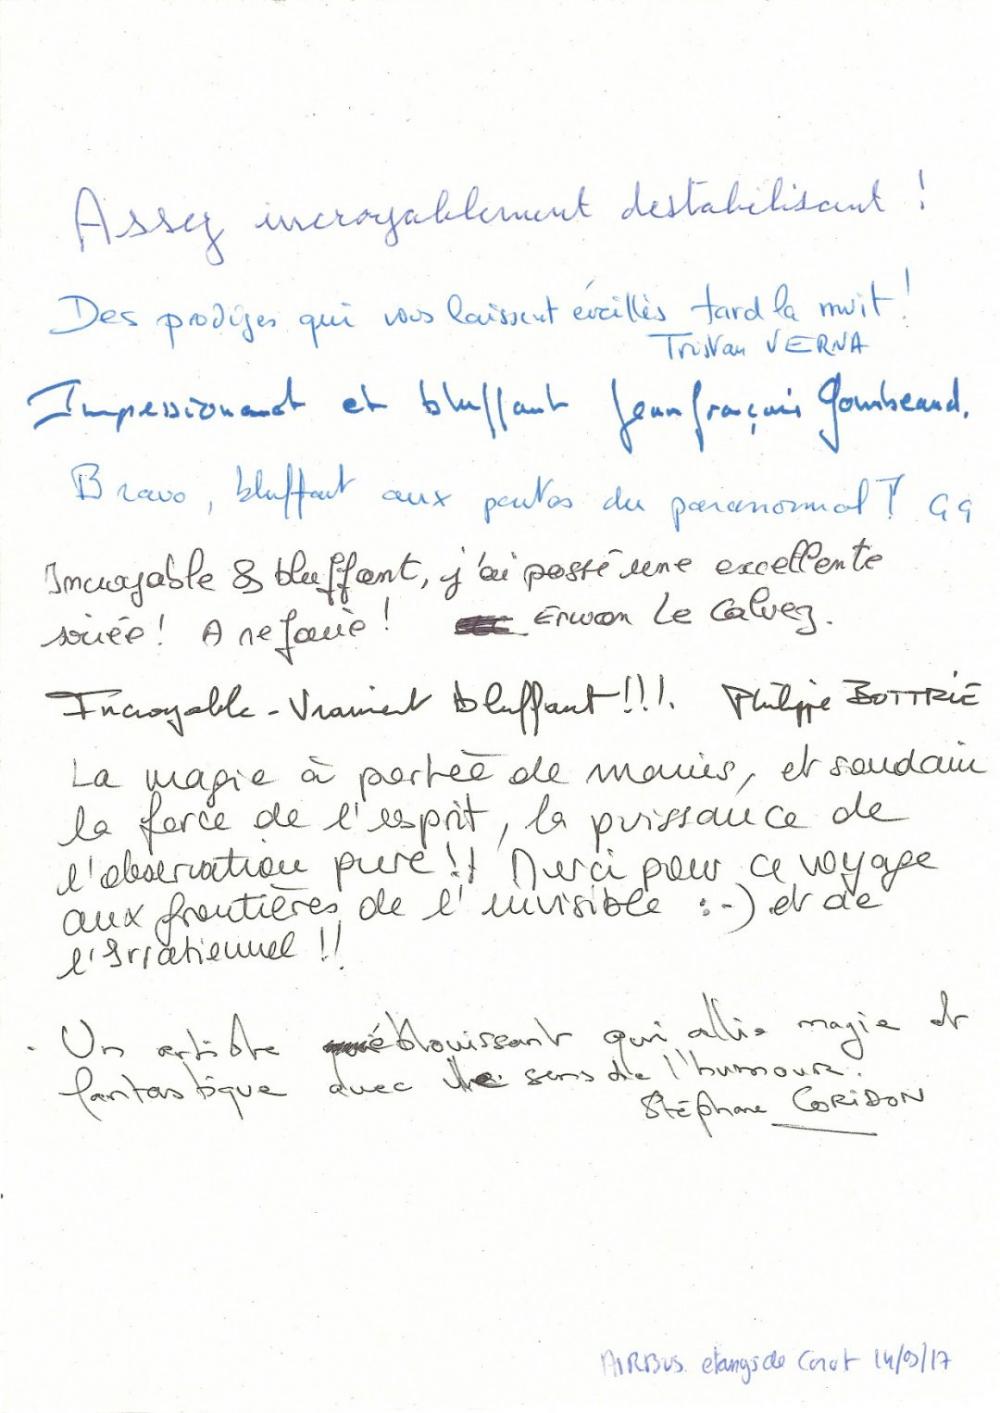 Assez incroyablement destabilisant !
Des prodiges qui vous laissent éveillés tard la nuit !
Tristan VERNA
Impressionant et bluffant Jean françois Gombeaud.
Bravo, bluffant aux portes du paranormal ! GG
Incroyable & bluffant, j'ai passé une excellente
soirée ! A refaire ! Erwan Le Calvez.
Incroyable - Vraiment bluffant !!!. Philippe BOTTRIE
La magie à portée de mains, et soudain
la force de l'esprit, la puissance de
l'observation pure !! Merci pour ce voyage
aux frontières de l'invisible :-) et de
l'Irrationnel !!
. Un artiste éblouissant qui allie magie et
fantastique avec le sens de l'humour.
Stéphane CORIDON
AIRBUS etangs de Corot 14/09/17